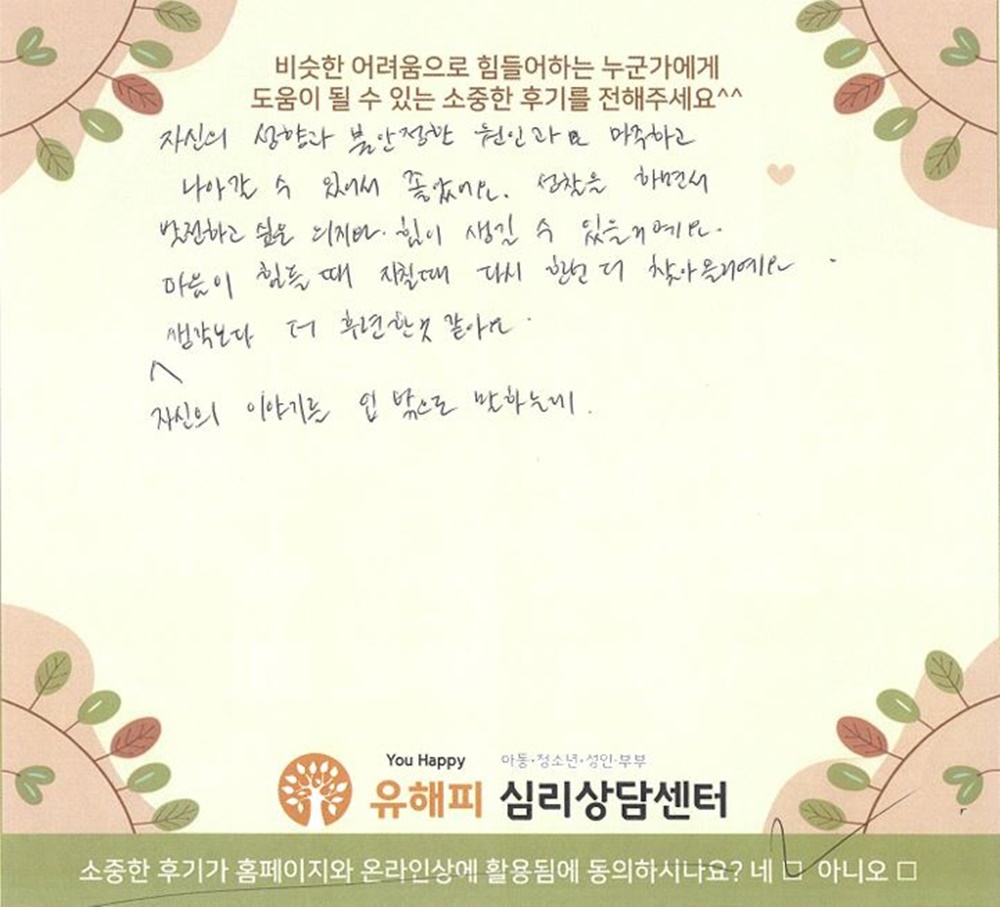 비슷한 어려움으로 힘들어하는 누군가에게
도움이 될 수 있는 소중한 후기를 전해주세요^^
자신의 성향과 불안정한 원인과 마주하고
나아갈 수 있어서 좋았어요. 성찰을 하면서
발전하고 싶은 의지나 힘이 생길 수 있을거예요.
마음이 힘들 때 지칠때 다시 한번 더 찾아올거예요.
생각보다 더 후련한것 같아요.
자신의 이야기를 입 밖으로 말하는게.
You Happy 아동·청소년·성인·부부
유해피 심리상담센터
소중한 후기가 홈페이지와 온라인상에 활용됨에 동의하시나요? 네 □ 아니오 □